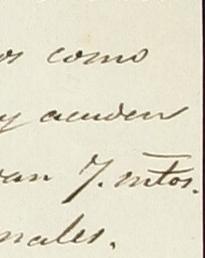 os como
y acuden
van 7. mtos.
nales.